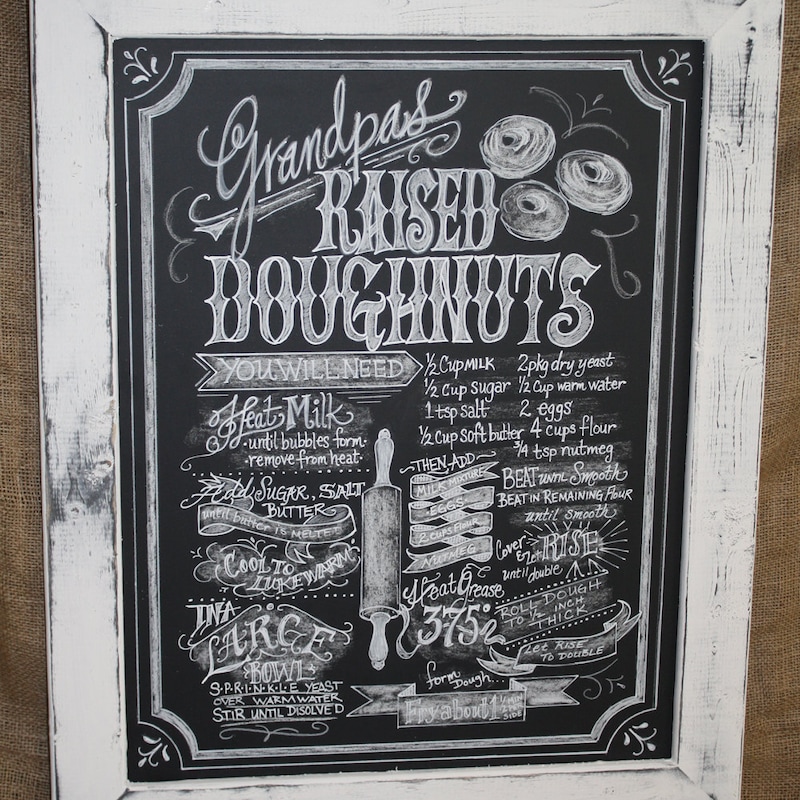 Grandpas
RAISED
DOUGHNUTS
YOU WILL NEED
½ Cup MILK
½ cup sugar
1 tsp salt
½ Cup soft butter
2 pkg dry yeast
½ Cup warm water
2 eggs
4 cups flour
¾ tsp nutmeg
Heat Milk
·until bubbles form·
·remove from heat·
Add SUGAR, SALT
BUTTER
until butter IS MELTED
COOL TO
LUKEWARM
IN A
LARGE
BOWL
S·P·R·I·N·K·L·E YEAST
OVER WARM WATER
STIR UNTIL DISOLVED
THEN ADD
MILK MIXTURE
·EGGS·
2 CUPS FLOUR
NUTMEG
BEAT UNTIL Smooth
BEAT IN REMAINING FLOUR
until smooth
Cover
& Let RISE
until double
ROLL DOUGH
TO ½ INCH
THICK
Let RISE
TO DOUBLE
Heat Grease
375°
form
Dough...
Fry about 1 ½ MIN
PER
SIDE